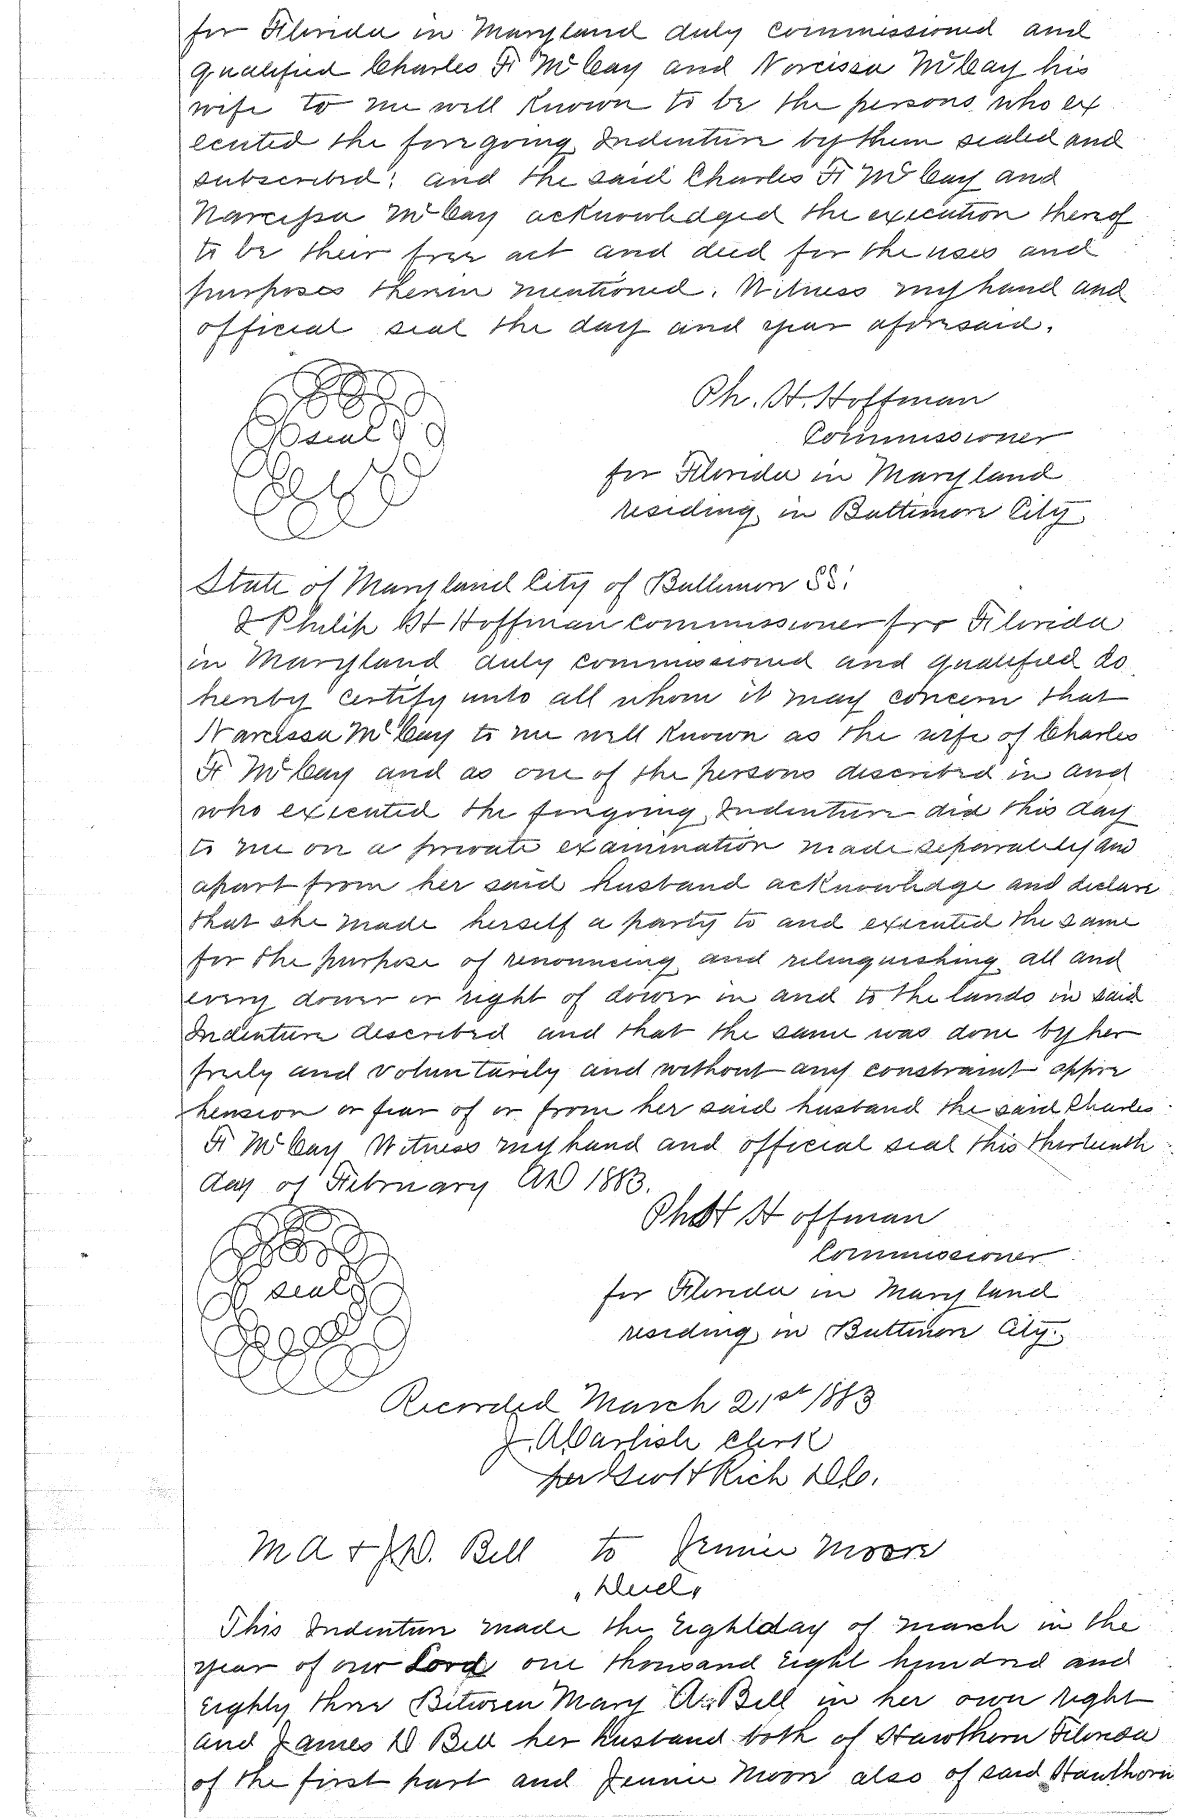 for Florida in Maryland duly commissioned and
qualified Charles F McCay and Narcissa McCay his
wife to me well known to be the persons who ex
ecuted the foregoing Indenture by them sealed and
subscribed; and the said Charles F McCay and
Narcissa McCay acknowledged the execution thereof
to be their free act and deed for the uses and
purposes therein mentioned. Witness my hand and
official seal the day and year aforesaid.
seal
Ph. H. Hoffman
Commissioner
for Florida in Maryland
residing in Baltimore City
State of Maryland City of Baltimore SS:
I Philip H Hoffman commissioner for Florida
in Maryland duly commissioned and qualified do
hereby certify unto all whom it may concern that
Narcissa McCay to me well known as the wife of Charles
F McCay and as one of the persons described in and
who executed the foregoing Indenture did this day
to me on a private examination made separately and
apart from her said husband acknowledge and declare
that she made herself a party to and executed the same
for the purpose of renouncing and relinquishing all and
every dower or right of dower in and to the lands in said
Indenture described and that the same was done by her
freely and voluntarily and without any constraint appre
hension or fear of or from her said husband the said Charles
F McCay Witness my hand and official seal this thirteenth
day of February AD 1883.
seal
Ph H Hoffman
Commissioner
for Florida in Maryland
residing in Baltimore City.
Recorded March 21st 1883
J. A Carlisle Clerk
per Rich D.C.
M A & J.D. Bell to Jennie Moore
"Deed"
This Indenture made the Eight day of March in the
year of our Lord one thousand Eight hundred and
Eighty three Between Mary A. Bell in her own right
and James D Bell her husband both of Hawthorn Florida
of the first part and Jennie Moore also of said Hawthorn